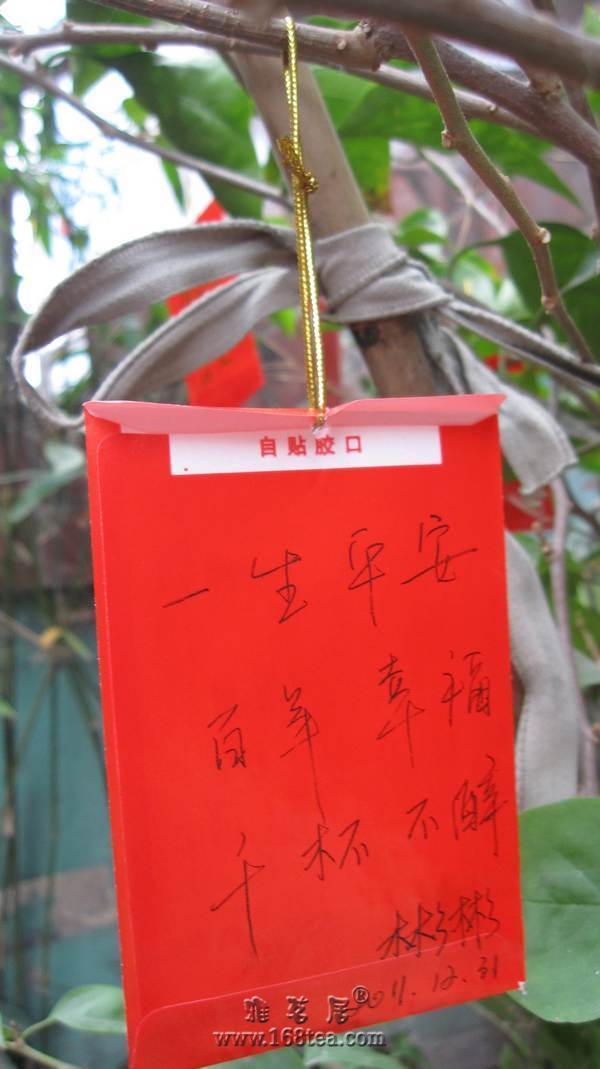 自贴胶口
一生平安
百年幸福
千杯不醉
彬彬
2011.12.31
雅茗居®
www.168tea.com